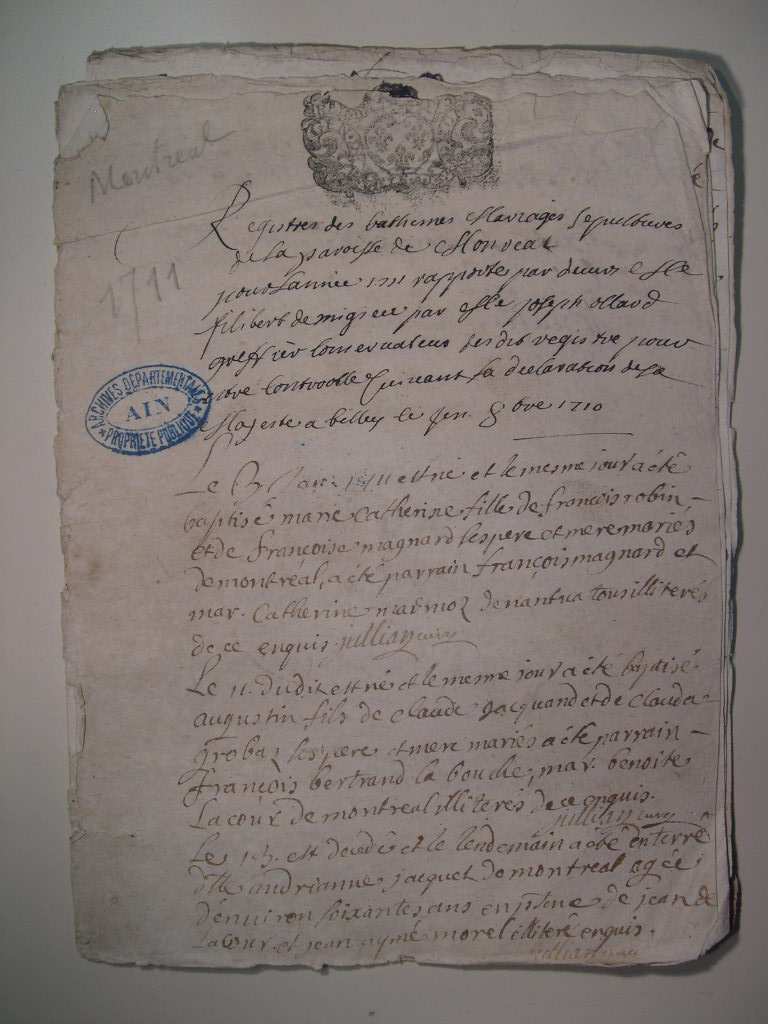 Montreal
1711
ARCHIVES DÉPARTEMENTALES
AIN
* PROPRIÉTÉ PUBLIQUE *
Registres des bathemes Mariages Sepultures
de la paroisse de Monreal
pour lannée 1711 rapportes par devers Me
filibert de migieu par Me Joseph ollard
greffier Conservateur des dit registre pour
Controolle suivant la declaration de sa
Majeste a belley le Jen. 8bre 1710
Le Janr. 1711 est né et le mesme jour a été
baptisé marie Catherine fille de francois robin
et de Françoise magnard ses pere et mere mariés
de montréal, a été parrain françois magnard et
mar. Catherine marmoz de nantua tous illiterés
de ce enquis. jullian curé
Le 11. dudit est né et le mesme jour a été baptisé
augustin fils de Claude Jacquand et de Clauda
grobaz ses pere et mere mariés a été parrain
François bertrand la bouche, mar. benoite
La cour de montreal illiterés de ce enquis.
jullian curé
Le est decedé et le lendemain a été enterré
andrianne jacquet de montreal agée
d'environ soixantes ans en pstne de jean de
la cour et jean aymé morel illiteré enquis.
jullian curé